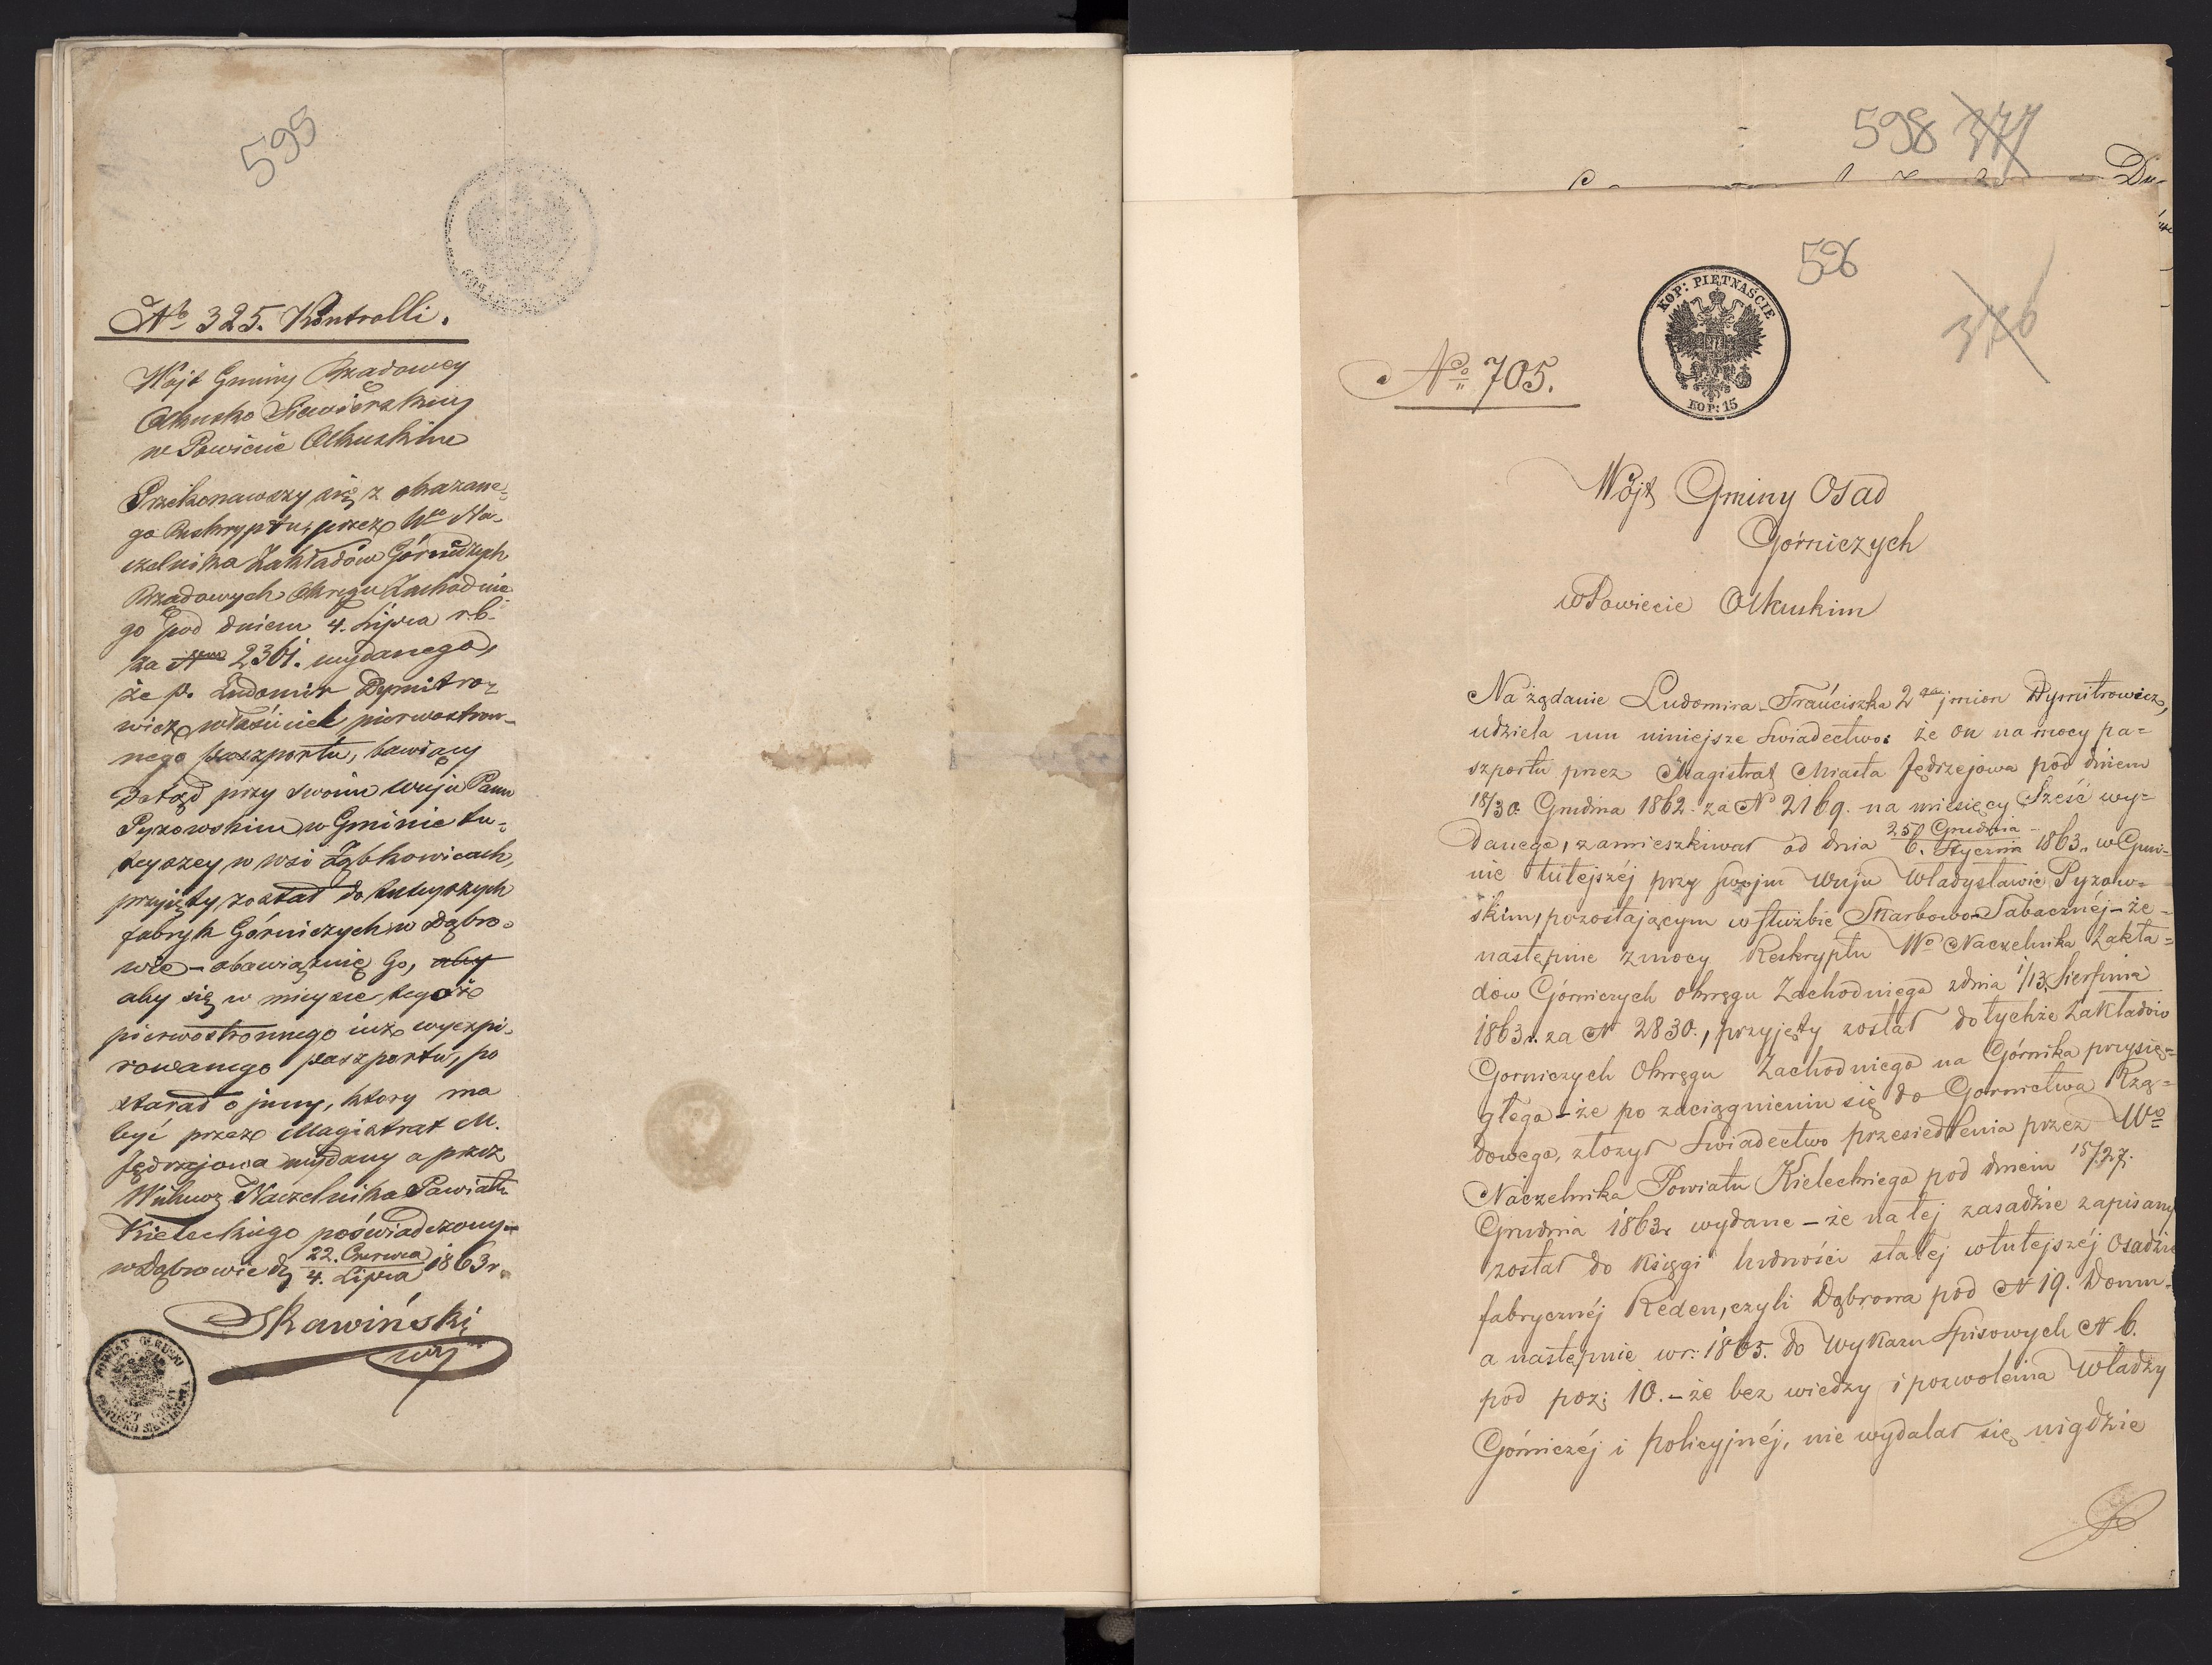 595
No 325. Kontrolli.
Wójt Gminy Rządowey
Olkusko Siewierskiey
w Powiecie Olkuskim
Przekonawszy się z okazane-
go Reskryptu, przez Wgo Na-
czelnika Zakładów Górniczych
Rządowych Okręgu Zachodnie-
go pod dniem 4. Lipca r.b.
za Nrem 2361. wydanego,
że p. Ludomir Dymitro-
wicz właściciel pierwostron-
nego paszportu, bawiący
dotąd przy swoim wuju Panu
Pyzowskim w Gminie tu-
teyszey w wsi Ząbkowicach,
przyięty został do tuteyszych
fabryk Górniczych w Dąbro-
wie – obowiązuię Go, aby
aby się w mieysce tegoże
pierwostronnego iuż wyexpi-
rowanego paszportu, po
starał o jnny, ktory ma
być przez Magistrat M.
Jędrzejowa wydany a przez
Naczelnika Powiatu
Kieleckiego poświadczony.–
w Dąbrowie d. 22. Czerwca / 4. Lipca 1863 r.
Skawiński
598 377
Du-
596
376
KOP: PIĘTNAŚCIE
KOP: 15
No 705.
Wójt Gminy Osad
Górniczych
w Powiecie Olkuskim
Na żądanie Ludomira-Franciszka 2ga jmion Dymitrowicz,
udziela mu niniejsze Swiadectwo: że on na mocy pa=
szportu przez Magistrat Miasta Jędrzejowa pod dniem
18/30. Grudnia 1862. za N 2169. na miesięcy Sześć wy=
danego, zamieszkiwał od dnia 25. Grudnia / 6. Stycznia 1863. w Gmi=
nie tutejszéj przy swojm Wuju Władysławie Pyzow=
skim, pozostającym w służbie Skarbowo-Tabacznéj – że =
następnie z mocy Reskryptu Wo Naczelnika Zakła=
dów Górniczych Okręgu Zachodniego z dnia 1/13. Sierpnia
1863 r. za N 2830., przyjęty został do tychże Zakładów
Gorniczych Okręgu Zachodniego na Górnika przysię=
głego – że po zaciągnieniu się do Gornictwa Rzą=
dowego, złożył Swiadectwo przesiedlenia przez Wo
Naczelnika Powiatu Kieleckiego pod dniem 15/27.
Grudnia 1863 r. wydane – że na tej zasadzie zapisany
został do księgi ludności stałej w tutejszéj Osadzie
fabrycznéj Reden, czyli Dąbrowa pod N 19. Domu =
a następnie w r: 1865. do Wykazu Spisowych N 6.
pod poz: 10. – że bez wiedzy i pozwolenia Władzy
Górniczéj i policyjnéj, nie wydalał się nigdzie